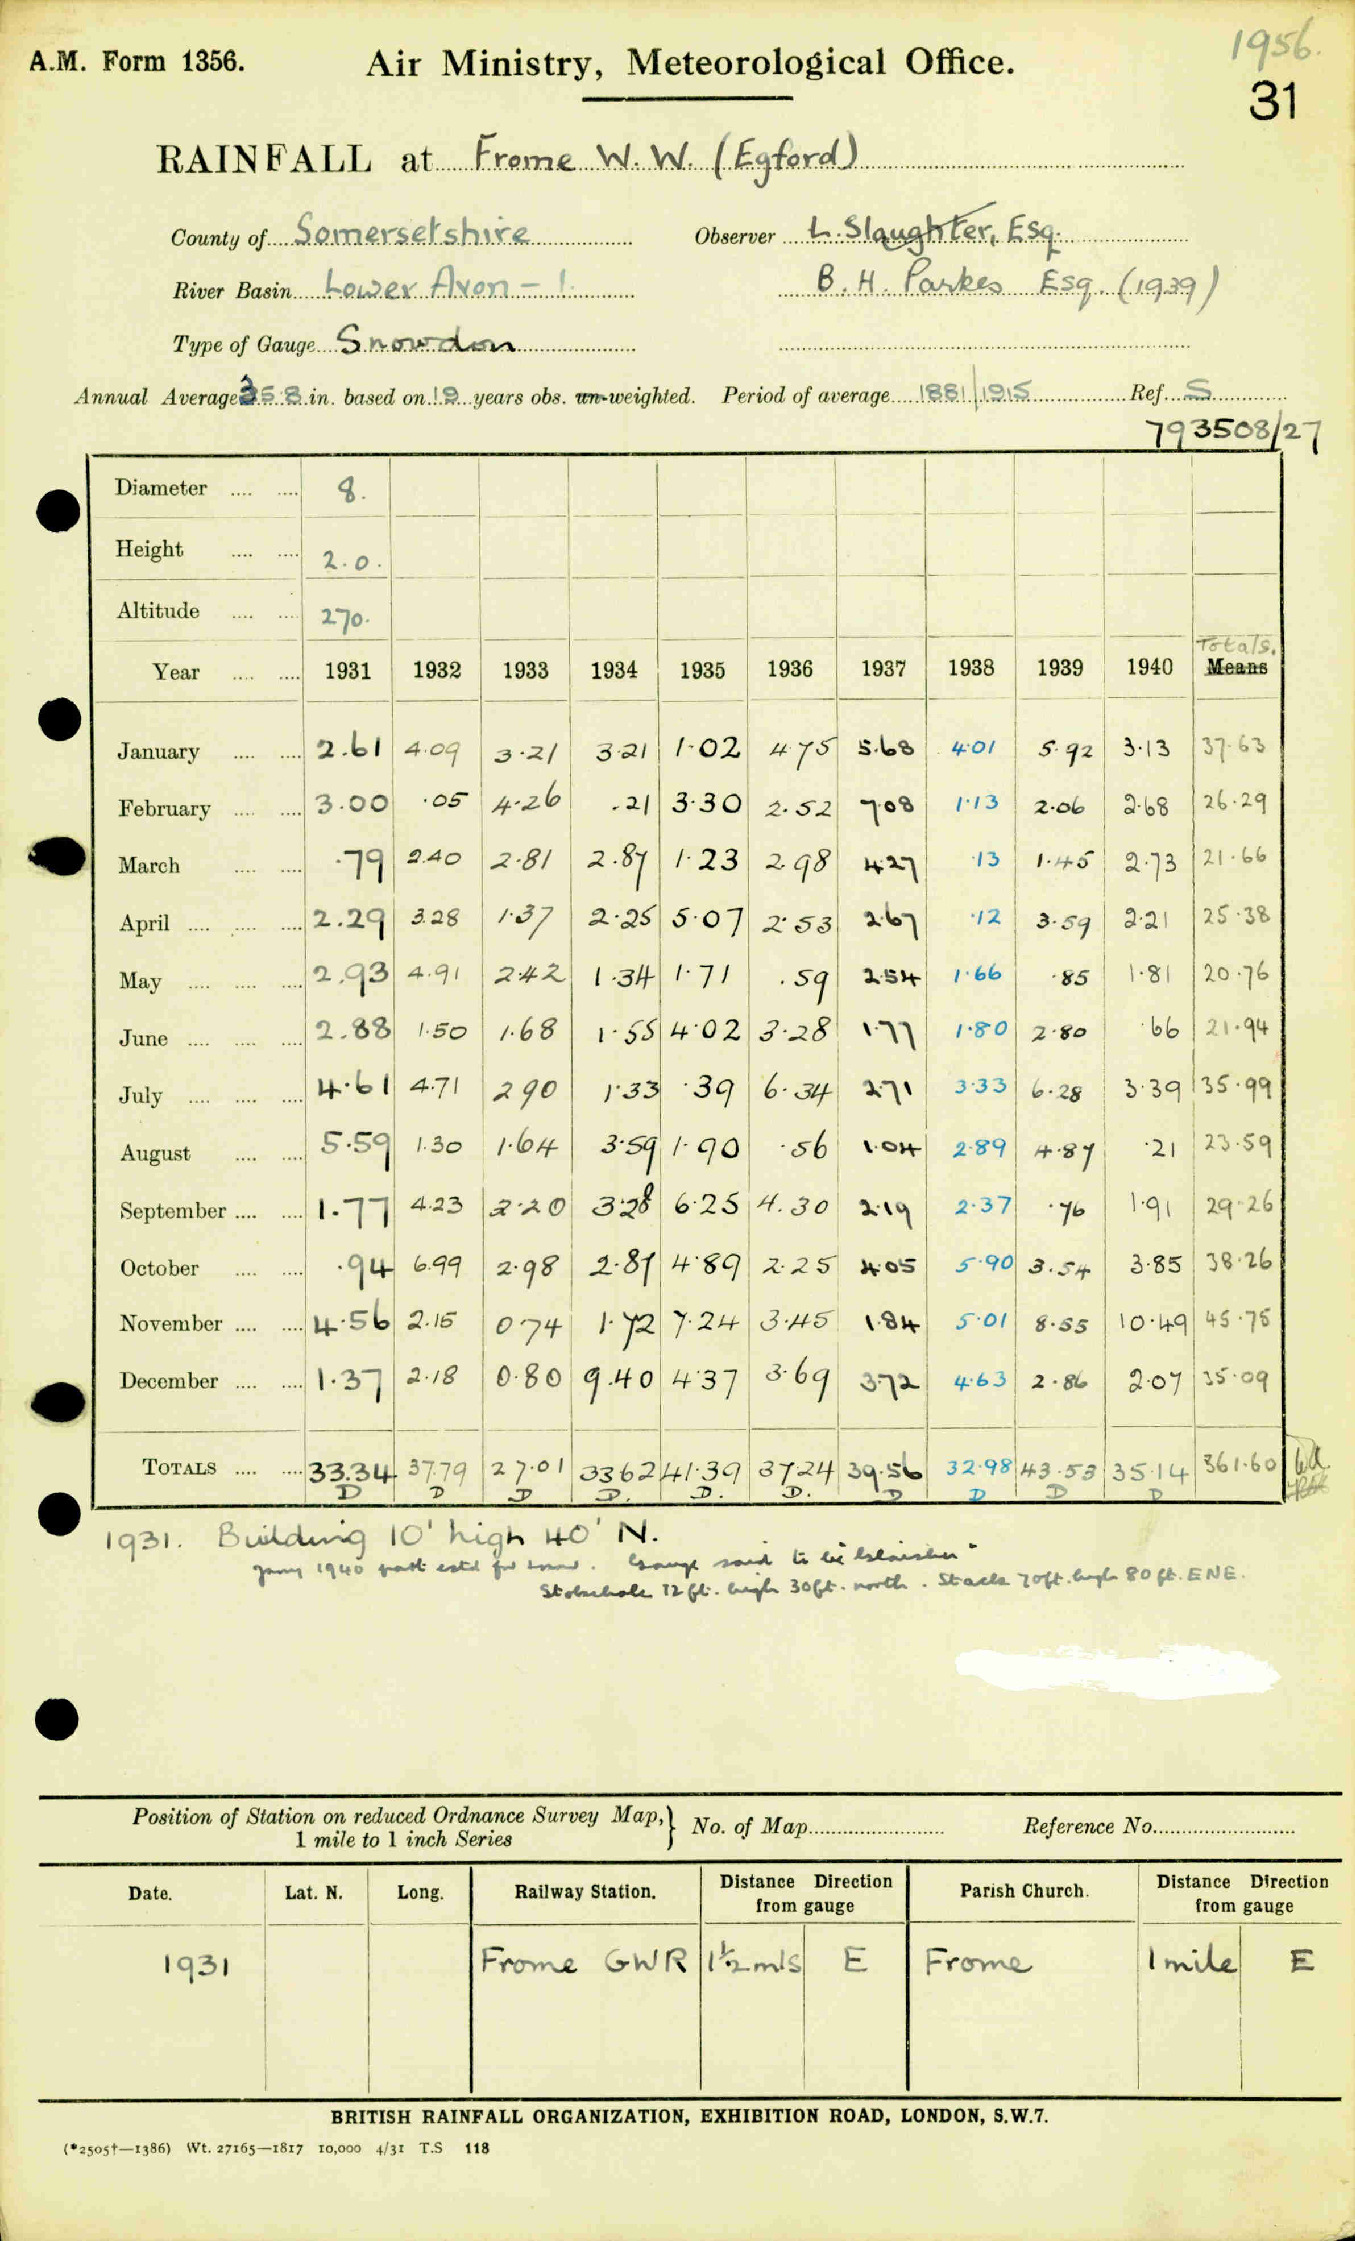 1956.
A.M. Form 1356. Air Ministry, Meteorological Office.
31
RAINFALL at Frome W.W. (Egford)
County of Somersetshire Observer L. Slaughter, Esq.
River Basin Lower Avon - 1. B. H. Parkes Esq. (1939)
Type of Gauge Snowdon
Annual Average 35.8 in. based on 19 years obs. un-weighted. Period of average 1881/1915 Ref. S
793508/27
Diameter 8.
Height 2.0.
Altitude 270.
Totals.
Year 1931 1932 1933 1934 1935 1936 1937 1938 1939 1940 Means
January 2.61 4.09 3.21 3.21 1.02 4.75 5.68 4.01 5.92 3.13 37.63
February 3.00 .05 4.26 .21 3.30 2.52 7.08 1.13 2.06 2.68 26.29
March .79 2.40 2.81 2.87 1.23 2.98 4.27 .13 1.45 2.73 21.66
April 2.29 3.28 1.37 2.25 5.07 2.53 2.67 .12 3.59 2.21 25.38
May 2.93 4.91 2.42 1.34 1.71 .59 2.54 1.66 .85 1.81 20.76
June 2.88 1.50 1.68 1.55 4.02 3.28 1.77 1.80 2.80 .66 21.94
July 4.61 4.71 2.90 1.33 .39 6.34 2.71 3.33 6.28 3.39 35.99
August 5.59 1.30 1.64 3.59 1.90 .56 1.04 2.89 4.87 .21 23.59
September 1.77 4.23 2.20 3.28 6.25 4.30 2.19 2.37 .76 1.91 29.26
October .94 6.99 2.98 2.87 4.89 2.25 4.05 5.90 3.54 3.85 38.26
November 4.56 2.15 0.74 1.72 7.24 3.45 1.84 5.01 8.55 10.49 45.75
December 1.37 2.18 0.80 9.40 4.37 3.69 3.72 4.63 2.86 2.07 35.09
TOTALS 33.34 37.79 27.01 33.62 41.39 37.24 39.56 32.98 43.53 35.14 361.60
D D D D. D. D. D D D D
1931. Building 10' high 40' N.
1940 part estd for snow. Gauge said to be
12 ft. high 30 ft. north. Stack 70ft. high 80 ft. ENE.
Position of Station on reduced Ordnance Survey Map, No. of Map Reference No.
1 mile to 1 inch Series
Date. Lat. N. Long. Railway Station. Distance Direction from gauge Parish Church. Distance Direction from gauge
1931 Frome GWR 1½ mls E Frome 1 mile E
BRITISH RAINFALL ORGANIZATION, EXHIBITION ROAD, LONDON, S.W.7.
(*2505†—1386) Wt. 27165—1817 10,000 4/31 T.S 118